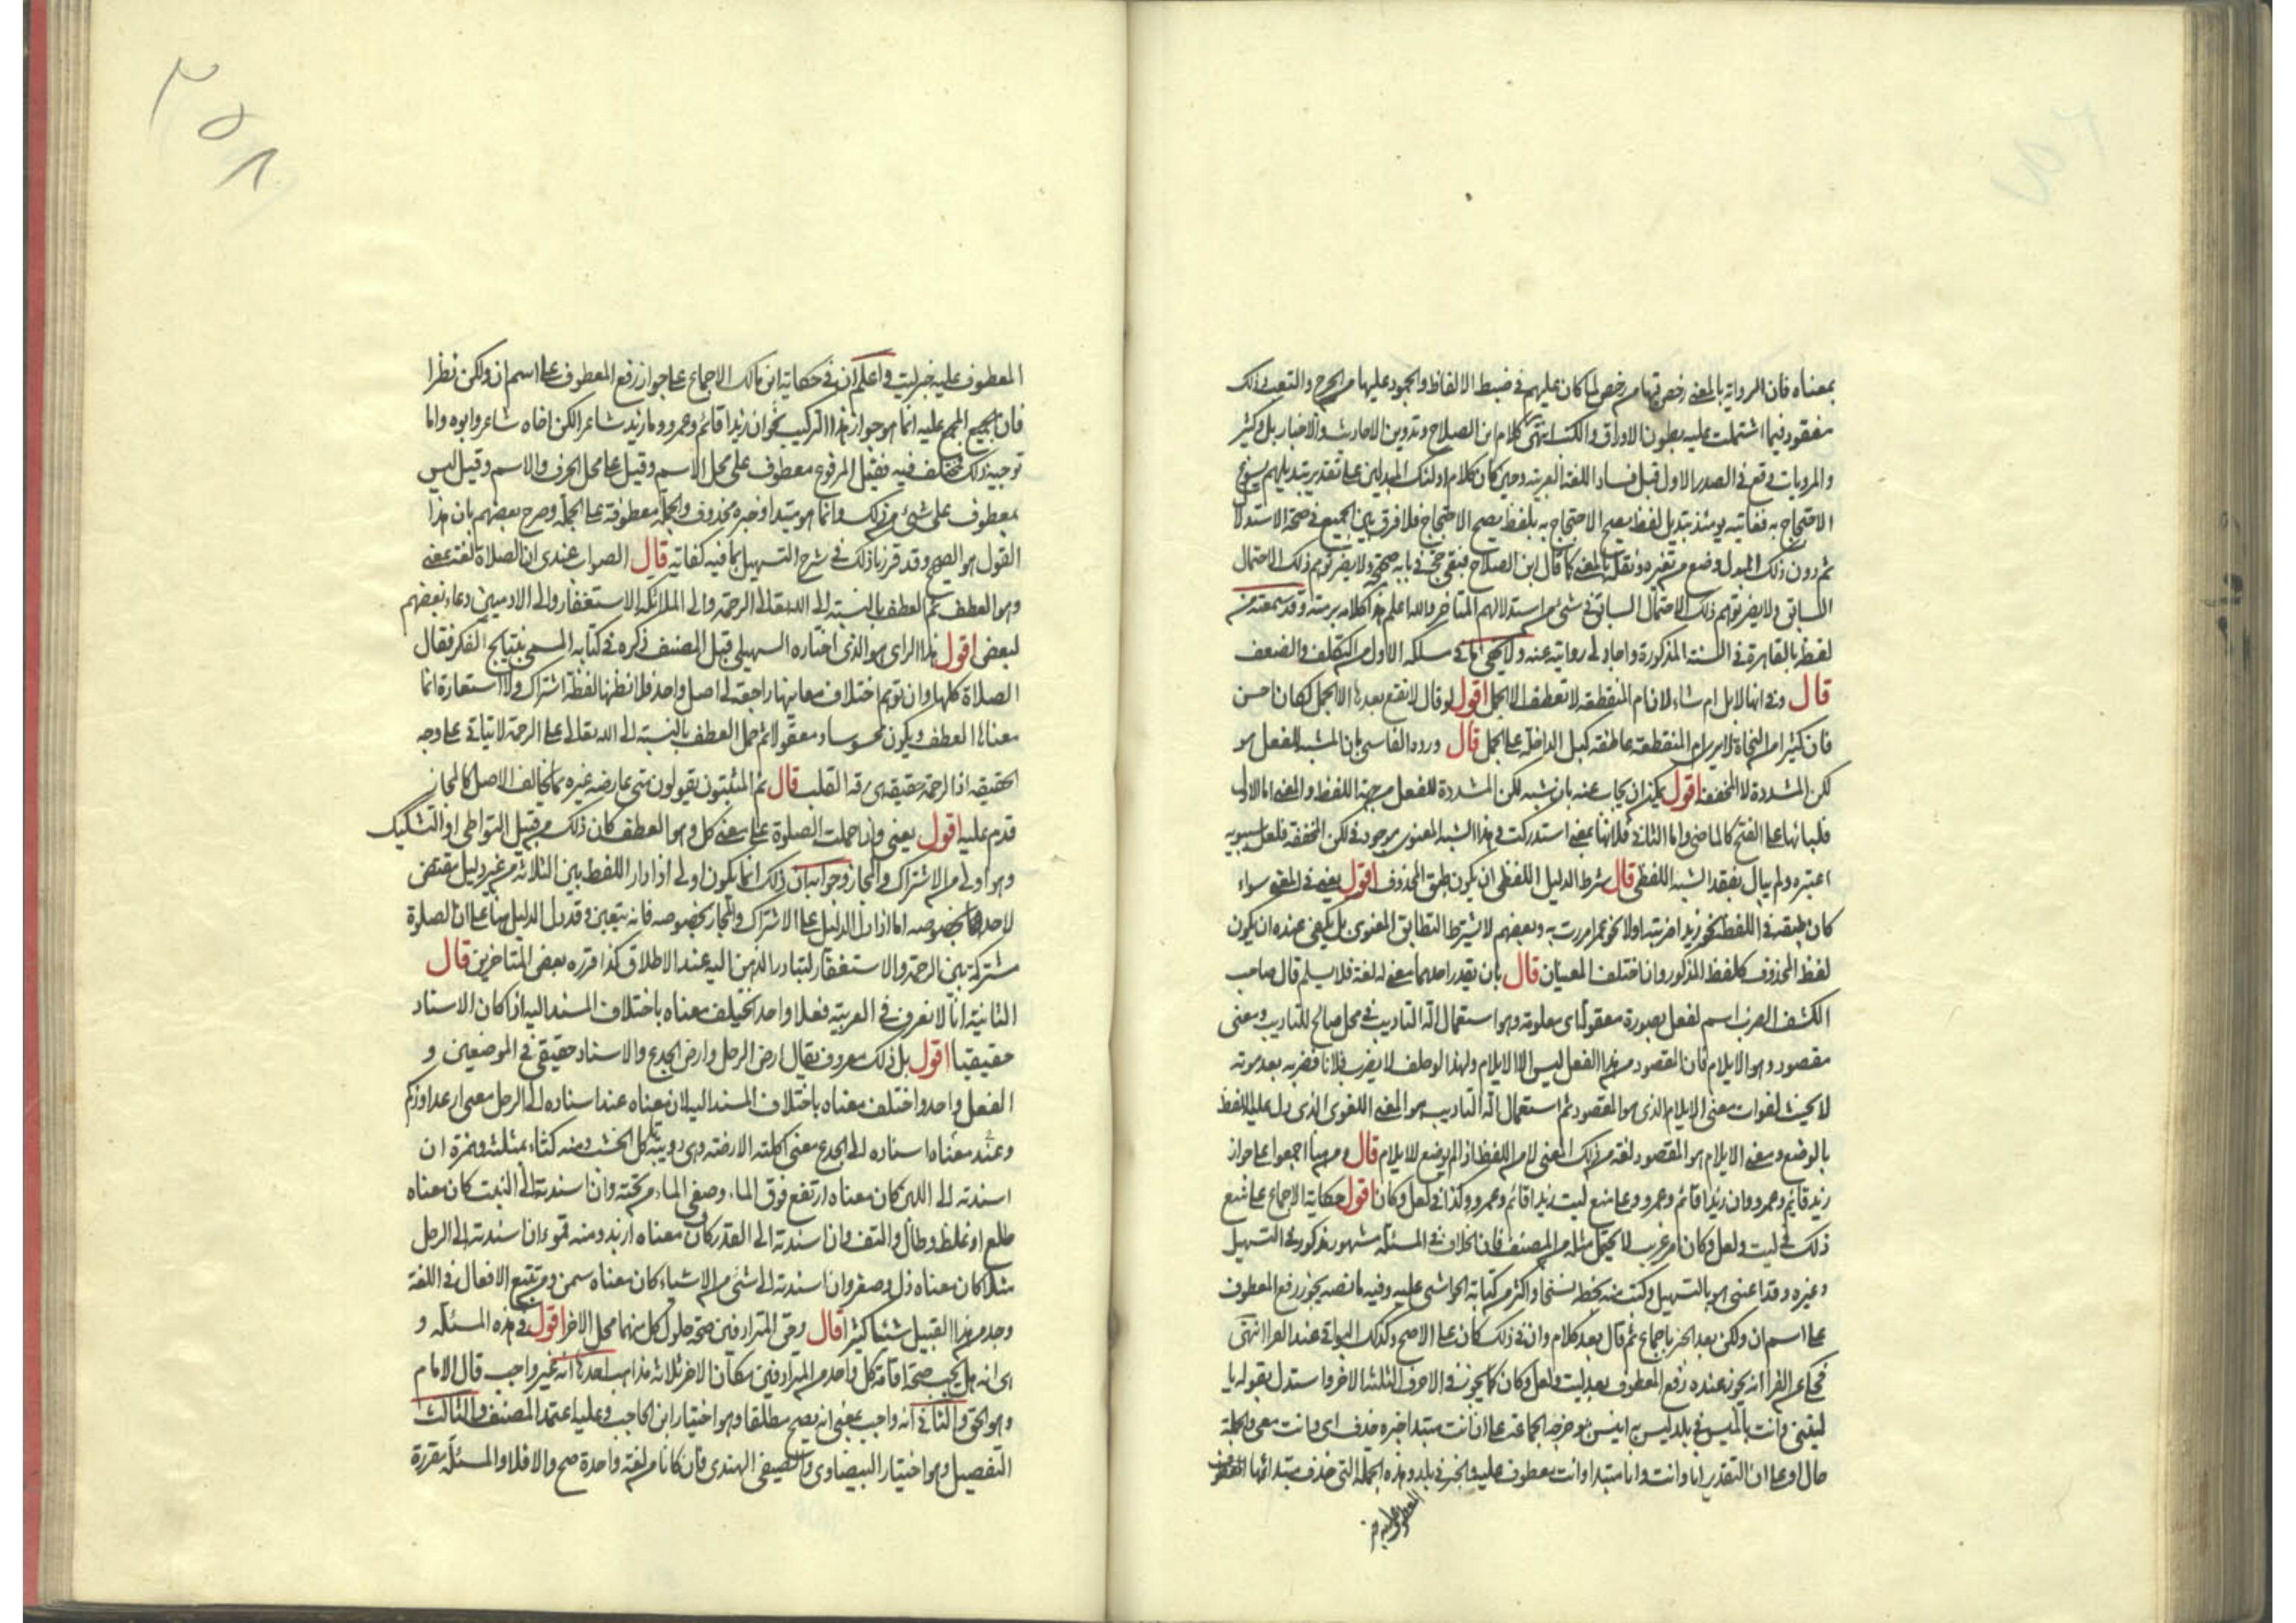 بمعناه فان الرواية بالمعنى رخص فيها من رخص لما كان عليهم في ضبط الالفاظ والجمود عليها من الحرج والتعب وذلك
مفقود فيما اشتملت عليه بطون الاوراق والكتب انتهى كلام ابن الصلاح وتدوين الاحاديث والاخبار بل وكثير
والمرويات وقع في الصدر الاول قبل فساد اللغة العربية وحين كان كلام اولئك المبدلين على تقدير تبديلهم يسوغ
الاحتجاج به فغايته يومئذ تبديل لفظ يصح الاحتجاج به بلفظ يصح الاحتجاج فلا فرق بين الجميع في صحة الاستدلال
ثم دون ذلك المبدل ومنع من تغيره ونقله بالمعنى كما قال ابن الصلاح فبقي حجة في بابه صحيحة ولا يضر توهم ذلك الاحتمال
السابق ولا يضر توهم ذلك الاحتمال السابق في شئ من استدلالهم المتاخر والله اعلم هذا كلامه برمته وقد سمعته من
لفظه بالقاهرة في السنة المذكورة واجاد لي روايته عنه ولا يخفى ما في مسلكه الاول من التكلف والضعف
قال وفي انها لابل ام شاء لان ام المنقطعة لا تعطف الا الجمل اقول لو قال لا تقع بعدها الا الجمل لكان احسن
فان كثيرا من النحاة لا يرى ام المنقطعة عاطفة كبل الداخلة على الجمل قال ورده الفاسي بان المشبه بالفعل هو
لكن المشددة لا المخففة اقول يمكن ان يجاب عنه بان شبه لكن المشددة للفعل من جهة اللفظ والمعنى اما الاول
فلبنائها على الفتح كالماضي واما الثاني فلانها بمعنى استدركت وهذا الشبه المعنوي موجود في لكن المخففة فلعل سيبويه
اعتبره ولم يبال بفقد الشبه اللفظي قال شرط الدليل اللفظي ان يكون طبق المحذوف اقول يعني في المعنى سواء
كان طبقه في اللفظ نحو زيدا ضربته اولا نحو عمرا مررت به وبعضهم لا يشترط التطابق المعنوي بل يكفي عنده ان يكون
لفظ المحذوف كلفظ المذكور وان اختلف المعنيان قال بان يقدر احدهما معنى له لغة فلا يسلم قال صاحب
الكشف الضرب اسم لفعل بصورة معقولة اي معلومة وهو استعمال آلة التاديب في محل صالح للتاديب ومعنى
مقصود وهو الايلام فان المقصود من هذا الفعل ليس الا الايلام ولهذا لو حلف لا يضرب فلانا فضربه بعد موته
لا يحنث لفوات معنى الايلام الذي هو المقصود ثم استعمال آلة التاديب هو المعنى اللغوي الذي دل عليه اللفظ
بالوضع ومعنى الايلام هو المقصود لغة من ذلك المعنى لا من اللفظ اذ لم يوضع للايلام قال ومن هنا اجمعوا على جواز
زيد قايم وعمرو وان زيدا قائم وعمرو وعلى منع ليت زيدا قائم وعمرو وكذا في لعل وكان اقول حكاية الاجماع على منع
ذلك في ليت ولعل وكان امر غريب لا يحتمل مثله من المصنف فان الخلاف في المسئلة مشهور مذكور في التسهيل
وغيره وقد اعتنى هو بالتسهيل وكتب منه بخطه نسخا واكثر من كتابة الحواشي عليه وفيه ما نصه يجوز رفع المعطوف
على اسم ان ولكن بعد الخبر باجماع ثم قال بعد كلام وان في ذلك كان على الاصح وكذلك البواقي عند الفرا انتهى
فحكي عن الفرا انه يجوز عنده رفع المعطوف بعد ليت ولعل وكان كما يجوز في الاحرف الثلثة الاخر واستدل بقوله يا
ليتني وانت يا لميس في بلد ليس به انيس وخرجه الجماعة على ان انت مبتدا خبره حذف اي وانت معي والجملة
حال او على ان التقدير انا وانت وانا مبتدا وانت معطوف عليه والخبر في بلد وهذه الجملة التي حذف مبتدائها
المعطوف عليه خبر
المعطوف عليه خبر ليت واعلم ان في حكاية ابن مالك الاجماع على جواز رفع المعطوف على اسم ان ولكن نظرا
فان الجميع المجمع عليه انما هو جواز هذا التركيب نحو ان زيدا قائم وعمرو وما زيد شاعرا لكن اخاه شاعر وابوه واما
توجيه ذلك فمختلف فيه فقيل المرفوع معطوف على محل الاسم وقيل على محل الحرف والاسم وقيل ليس
بمعطوف على شئ من ذلك وانما هو مبتدا وخبره محذوف والجملة معطوفة على الجملة وصرح بعضهم بان هذا
القول هو الصحيح وقد قررنا ذلك في شرح التسهيل بما فيه كفاية قال الصواب عندي ان الصلاة لغة بمعنى
وهو العطف ثم العطف بالنسبة الى الله تعالى الرحمة والى الملائكة الاستغفار والى الادميين دعاء بعضهم
لبعض اقول هذا الراى هو الذي اختاره السهيلي قبل المصنف ذكره في كتابه المسمى بنتايج الفكر فقال
الصلاة كلها وان توهم اختلاف معانيها راجعة الى اصل واحد فلا تظنها لفظة اشتراك ولا استعارة انما
معناها العطف ويكون محسوسا ومعقولا ثم حمل العطف بالنسبة الى الله تعالى على الرحمة لا يتاتى على وجه
الحقيقة اذ الرحمة حقيقة هي رقة القلب قال ثم المثبتون يقولون متى عارضه غيره مما يخالف الاصل كالمجاز
قدم عليه اقول يعني وان حملت الصلوة على معنى كل وهو العطف كان ذلك من قبيل التواطي او التشكيك
وهو اولى من الاشتراك والمجاز وجوابه ان ذلك انما يكون اولى اذا دار اللفظ بين الثلاثة من غير دليل يقتضي
لاحدها بخصوصه اما اذا دل الدليل على الاشتراك والمجاز بخصوصه فانه يتعين وقد دل الدليل هنا على ان الصلوة
مشتركة بين الرحمة والاستغفار لتبادر الذهن اليه عند الاطلاق كذا قرره بعض المتاخرين قال
الثانية انا لا نعرف في العربية فعلا واحدا يختلف معناه باختلاف المسند اليه اذا كان الاسناد
حقيقيا اقول بل ذلك معروف يقال ارض الرجل وارض الجذع والاسناد حقيقي في الموضعين و
الفعل واحد واختلف معناه باختلاف المسند اليه لان معناه عند اسناده الى الرجل معنى ارعد او زكم
وعند معناه اسناده الى الجذع معنى اكلته الارضة وهي دويبة تاكل الخشب ومنه كثاء بمثلثة وهمزة ان
اسندته الى اللبن كان معناه ارتفع فوق الماء وصفي الماء من تحته وان اسندته الى النبت كان معناه
طلع او غلظ وطال والتف وان اسندته الى القدر كان معناه ازبد ومنه قموء ان اسندته الى الرجل
مثلا كان معناه ذل وصغر وان اسندته الى شئ من الاشياء كان معناه سمن ومن تتبع الافعال في اللغة
وجد من هذا القبيل شيئا كثيرا قال وحق المترادفين صحة حلول كل منهما محل الاخر اقول في هذه المسئلة و
هي انه هل يجب صحة اقامة كل واحد من المترادفين مكان الاخر ثلاثة مذاهب احدها انه غير واجب قال الامام
وهو الحق والثاني انه واجب بمعنى انه يصح مطلقا وهو اختيار ابن الحاجب وعليه اعتمد المصنف والثالث
التفصيل وهو اختيار البيضاوي والصفي الهندي فان كانا من لغة واحدة صح والا فلا والمسئلة مقررة